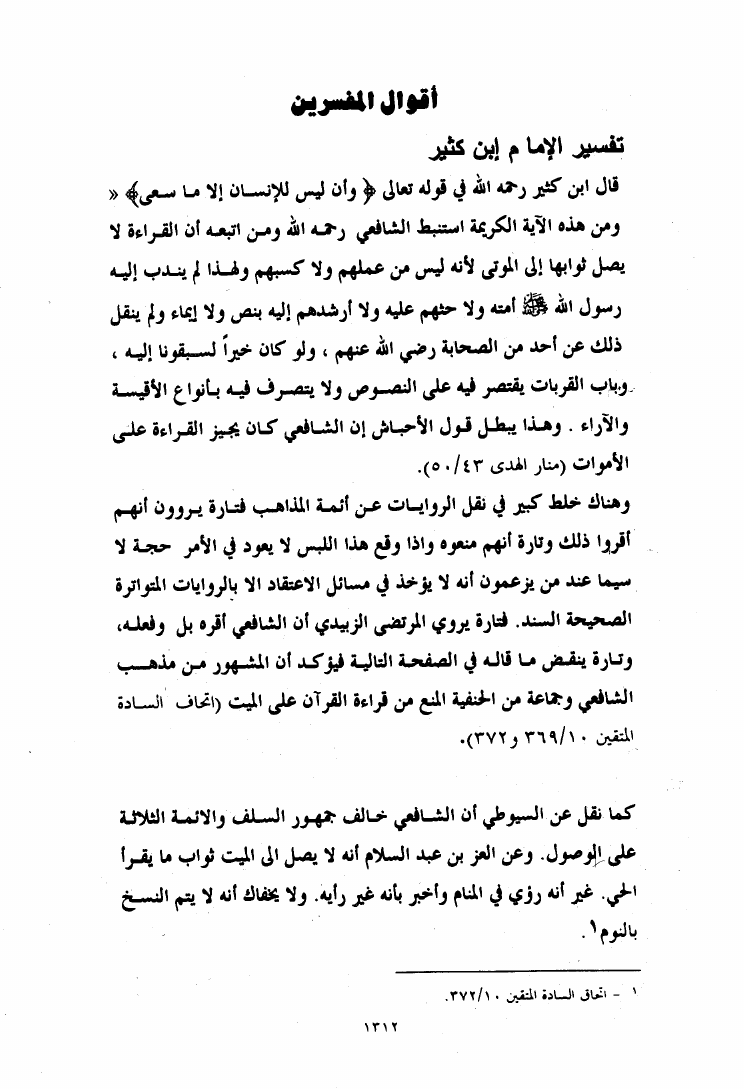 أقوال المفسرين
تفسير الإما م إبن كثير
قال ابن كثير رحمه الله في قوله تعالى ﴿ وأن ليس للإنسان إلا ما سعى﴾ «
ومن هذه الآية الكريمة استنبط الشافعي رحمه الله ومن اتبعه أن القراءة لا
يصل ثوابها إلى الموتى لأنه ليس من عملهم ولا كسبهم ولهذا لم يندب إليه
رسول الله ﷺ أمته ولا حثهم عليه ولا أرشدهم إليه بنص ولا إيماء ولم ينقل
ذلك عن أحد من الصحابة رضي الله عنهم ، ولو كان خيراً لسبقونا إليه ،
وباب القربات يقتصر فيه على النصوص ولا يتصرف فيه بأنواع الأقيسة
والآراء . وهذا يبطل قول الأحباش إن الشافعي كان يجيز القراءة على
الأموات (منار الهدى ٥٠/٤٣).
وهناك خلط كبير في نقل الروايات عن أئمة المذاهب فتارة يروون أنهم
أقروا ذلك وتارة أنهم منعوه واذا وقع هذا اللبس لا يعود في الأمر حجة لا
سيما عند من يزعمون أنه لا يؤخذ في مسائل الاعتقاد الا بالروايات المتواترة
الصحيحة السند. فتارة يروي المرتضى الزبيدي أن الشافعي أقره بل وفعله،
وتارة ينقض ما قاله في الصفحة التالية فيؤكد أن المشهور من مذهب
الشافعي وجماعة من الحنفية المنع من قراءة القرآن على الميت (اتحاف السادة
المتقين ٣٦٩/١٠ و٣٧٢).
كما نقل عن السيوطي أن الشافعي خالف جمهور السلف والائمة الثلاثة
على الوصول. وعن العز بن عبد السلام أنه لا يصل الى الميت ثواب ما يقرأ
الحي. غير أنه رؤي في المنام وأخبر بأنه غير رأيه. ولا يخفاك أنه لا يتم النسخ
بالنوم١.
١ - اتحاق السادة المتقين ٣٧٢/١٠.
١٣١٢